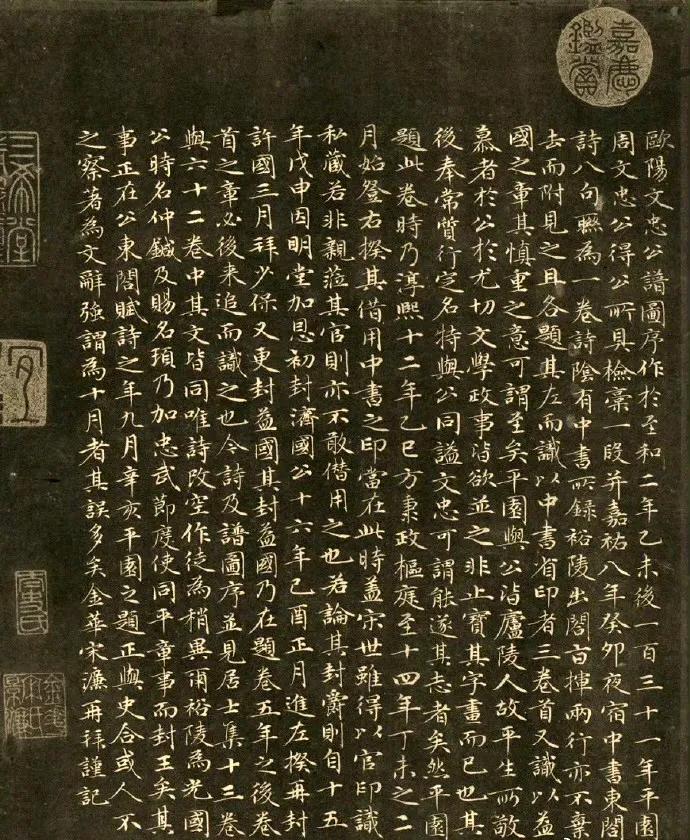 嘉慶鑑賞
歐陽文忠公譜圖序作於至和二年乙未後一百三十一年平園
周文忠公得公所具檢藁一段并嘉祐八年癸卯夜宿中書東閣
詩八句聮為一卷詩陰有中書所録裕陵出閣百揮兩行亦不棄
去而附見之且各題其左而識以中書省印者三卷首又識以益
國之章其慎重之意可謂至矣平園與公皆廬陵人故平生所敬
慕者於公於尤切文學政事皆欲並之非止寶其字畫而已也其
後奉常質行定名特與公同謚文忠可謂能遂其志者矣然平園
題此卷時乃淳熙十二年乙巳方秉政樞庭至十四年丁未之二
月始登右揆其借用中書之印當在此時葢宋世雖得以官印識
私藏若非親蒞其官則亦不敢僭用之也若論其封爵則自十五
年戊申因明堂加恩初封濟國公十六年己酉正月進左揆再封
許國三月拜少保又更封益國其封益國乃在題卷五年之後卷
首之章必後来追而識之也今詩及譜圖序並見居士集十三卷
與六十二卷中其文皆同唯詩改空作徒為稍異爾裕陵為光國
公時名仲鍼及賜名頊乃加忠武節度使同平章事而封王矣其
事正在公東閣賦詩之年九月辛亥平園之題正與史合或人不
之察著為文辭強謂為十月者其誤多矣金華宋濂再拜謹記
三希堂